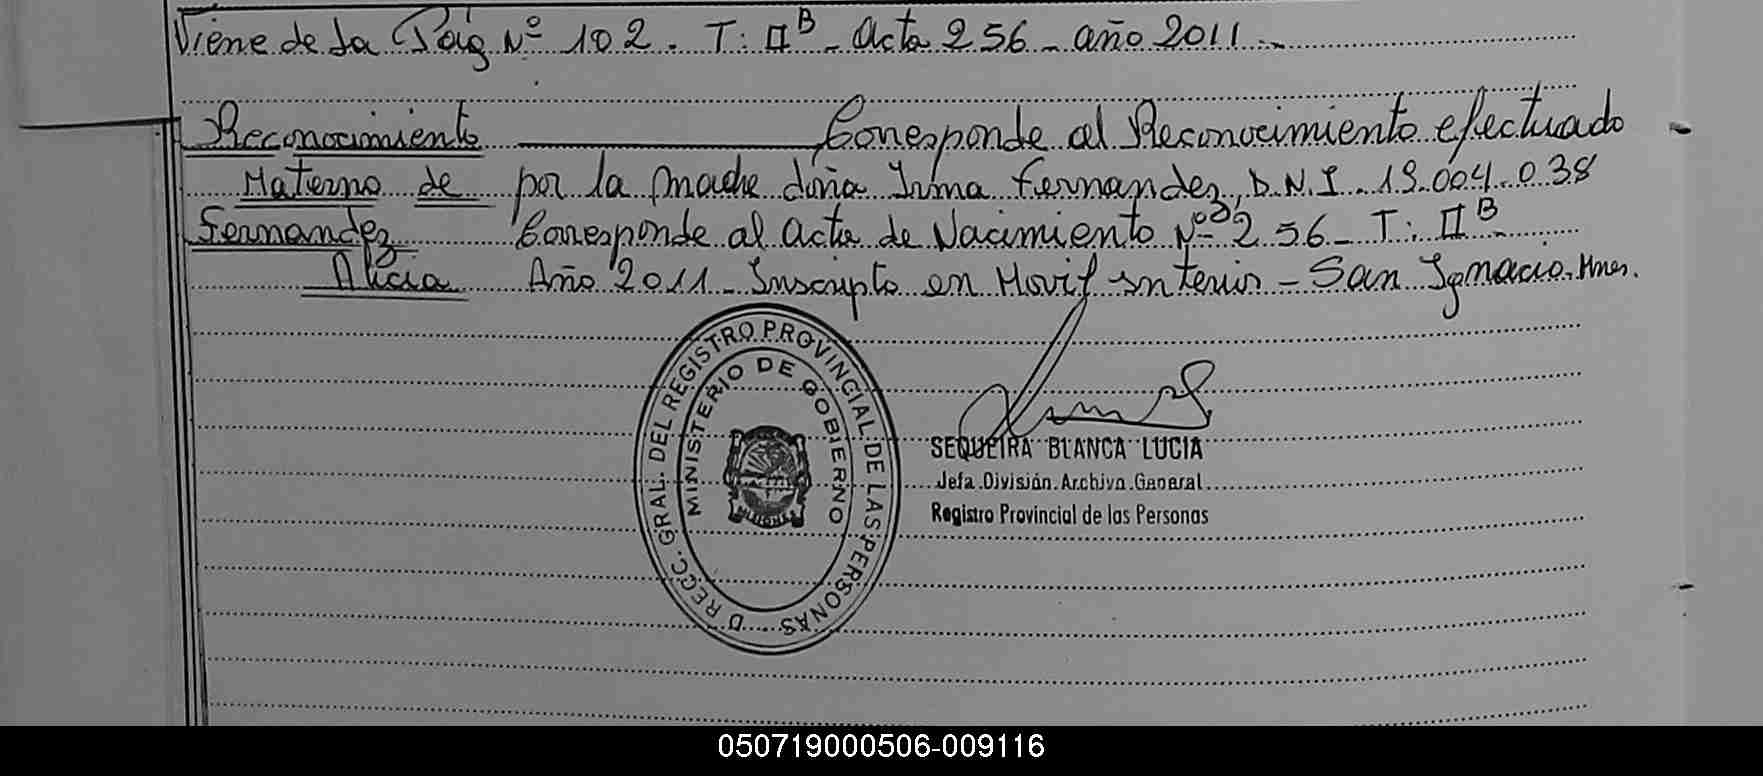 Viene de la Pág Nº 102. T: IIᴮ - Acta 256 - año 2011 -
Reconocimiento Corresponde al Reconocimiento efectuado
Materno de por la madre doña Irma Fernandez, D.N.I. 19.004.038
Fernandez Corresponde al acta de Nacimiento Nº 256 - T: IIᴮ -
Alicia Año 2011 - Inscripto en Movil Interior - San Ignacio. Mnes.
DIRECC. GRAL. DEL REGISTRO PROVINCIAL DE LAS PERSONAS
MINISTERIO DE GOBIERNO
MISIONES
SEQUEIRA BLANCA LUCIA
Jefa División Archivo General
Registro Provincial de las Personas
050719000506-009116